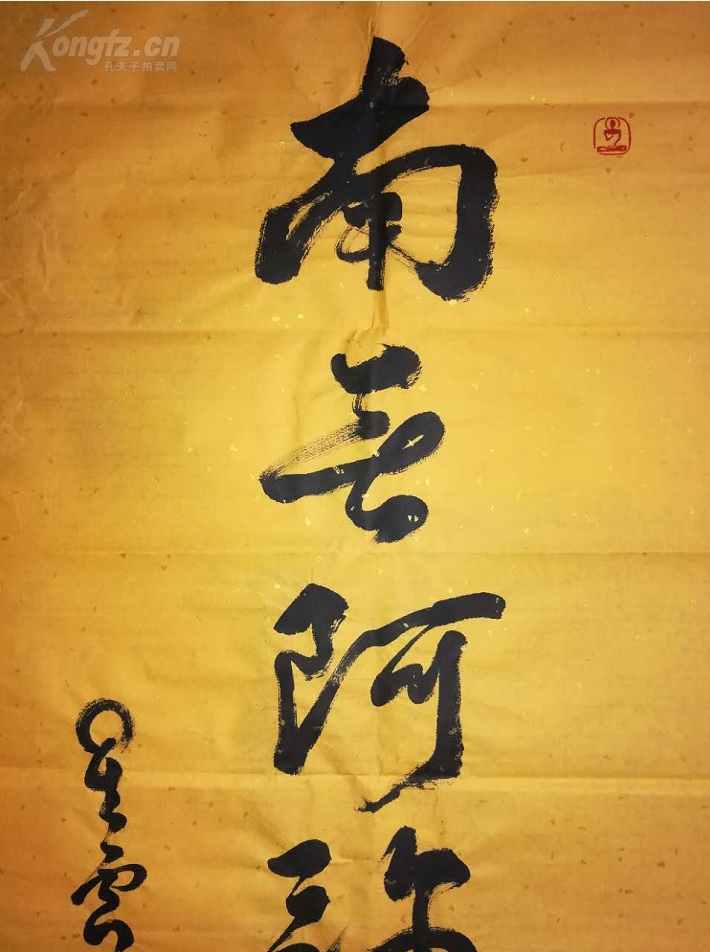 Kongfz.cn
孔夫子拍卖网
南无阿弥
星雲